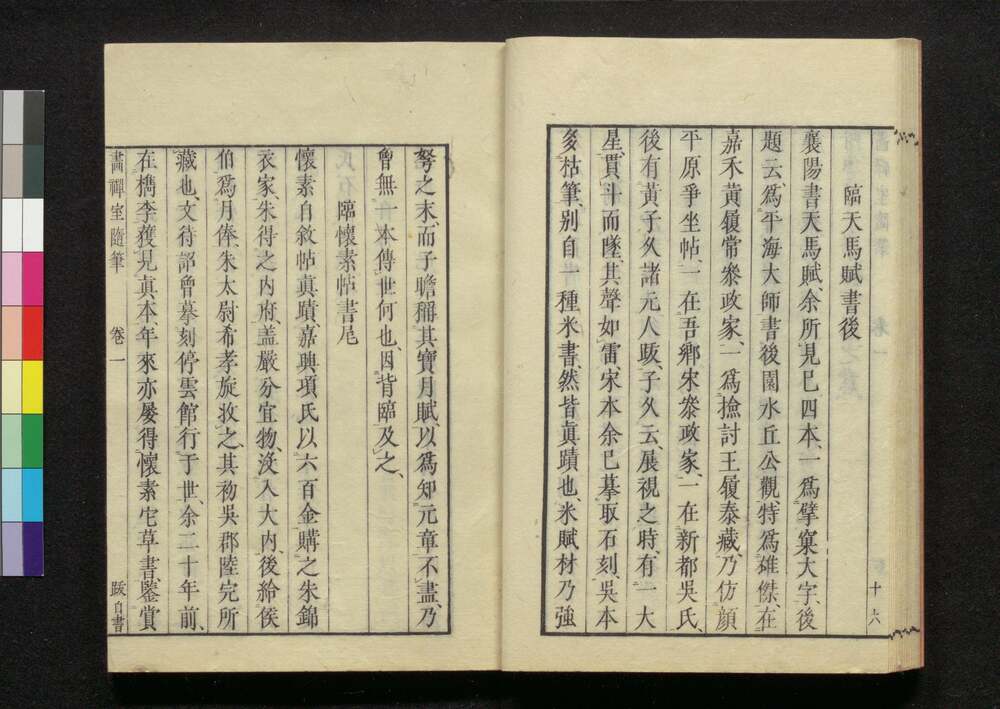 十六
臨天馬賦書後
襄陽書天馬賦余所見已四本、一爲擘窠大字、後
題云、爲平海大師書後園水丘公觀、特爲雄傑、在
嘉禾黄履常叅政家、一爲撿討王履泰藏、乃仿顔
平原爭坐帖、一在吾鄉宋叅政家、一在新都吳氏、
後有黄子久諸元人䟦、子久云、展視之時、有一大
星貫斗而墜、其聲如雷、宋本余已摹取石刻、吳本
多枯筆、别自一種米書、然皆眞蹟也、米賦材乃強
弩之末、而子瞻稱其寶月賦、以爲知元章不盡、乃
曾無一本傳世何也、因背臨及之、
臨懷素帖書尾
懷素自敘帖眞蹟、嘉興項氏以六百金購之朱錦
衣家、朱得之内府、盖嚴分宜物、没入大内、後給侯
伯爲月俸、朱太尉希孝旋收之、其初吳郡陸完所
藏也、文待詔曾摹刻停雲館行于世、余二十年前、
在檇李獲見眞本、年來亦屢得懷素它草書、鑒賞
畫禪室隨筆 卷一 䟦自書